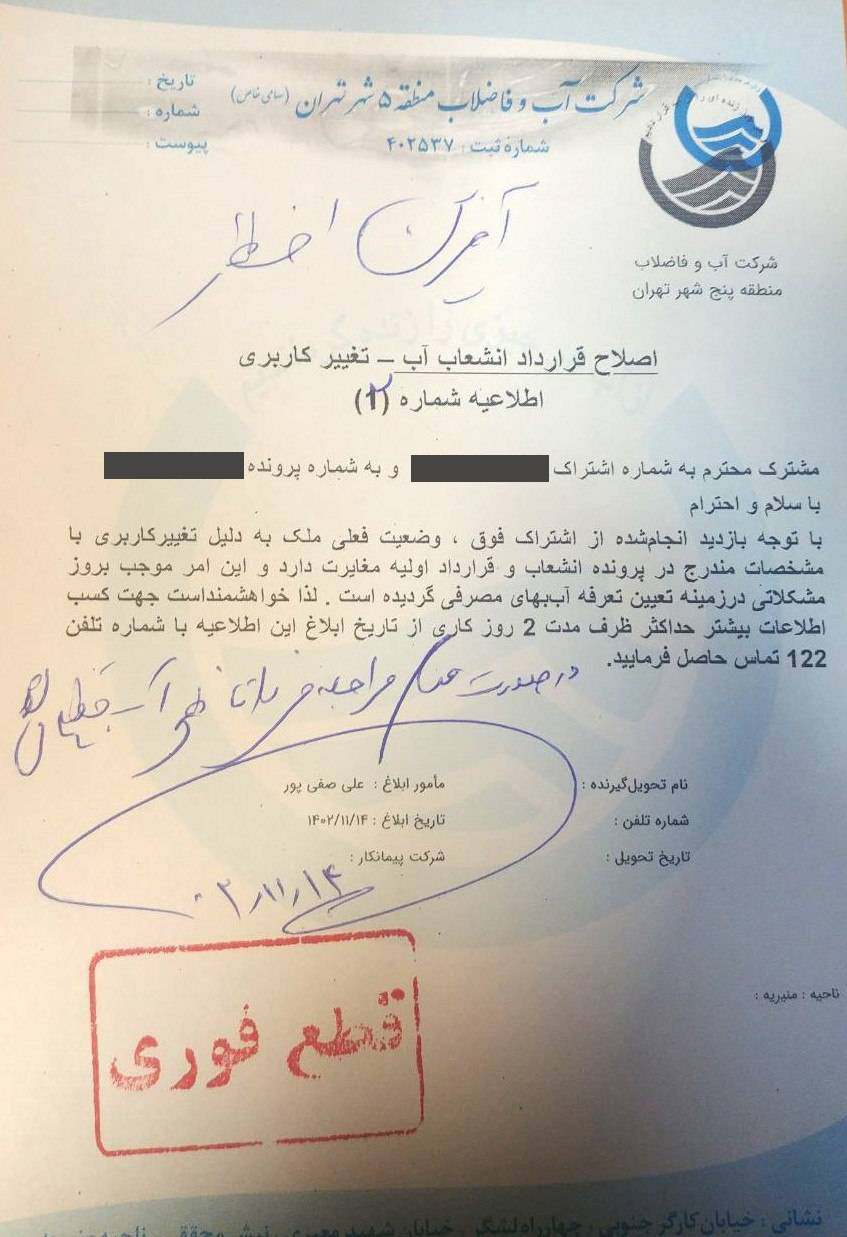 شرکت آب و فاضلاب منطقه ۵ شهر تهران (سهامی خاص)
شماره ثبت : ۴۰۲۵۳۷
تاریخ :
شماره :
پیوست :
شرکت آب و فاضلاب
منطقه پنج شهر تهران
آخرین اخطار
اصلاح قرارداد انشعاب آب – تغییر کاربری
اطلاعیه شماره (2)
مشترک محترم به شماره اشتراک و به شماره پرونده
با سلام و احترام
با توجه بازدید انجام‌شده از اشتراک فوق ، وضعیت فعلی ملک به دلیل تغییرکاربری با
مشخصات مندرج در پرونده انشعاب و قرارداد اولیه مغایرت دارد و این امر موجب بروز
مشکلاتی درزمینه تعیین تعرفه آب‌بهای مصرفی گردیده است . لذا خواهشمنداست جهت کسب
اطلاعات بیشتر حداکثر ظرف مدت 2 روز کاری از تاریخ ابلاغ این اطلاعیه با شماره تلفن
122 تماس حاصل فرمایید.
در صورت عدم مراجعه آب قطع
نام تحویل‌گیرنده : مأمور ابلاغ : علی صفی پور
شماره تلفن : تاریخ ابلاغ : ۱۴۰۲/۱۱/۱۴
تاریخ تحویل : شرکت پیمانکار :
۰۲/۱۱/۱۴
ناحیه : منیریه :
قطع فوری
نشانی : خیابان کارگر جنوبی ، چهارراه لشگر ، خیابان شهید معیری ، نبش محققی ، ناحیه